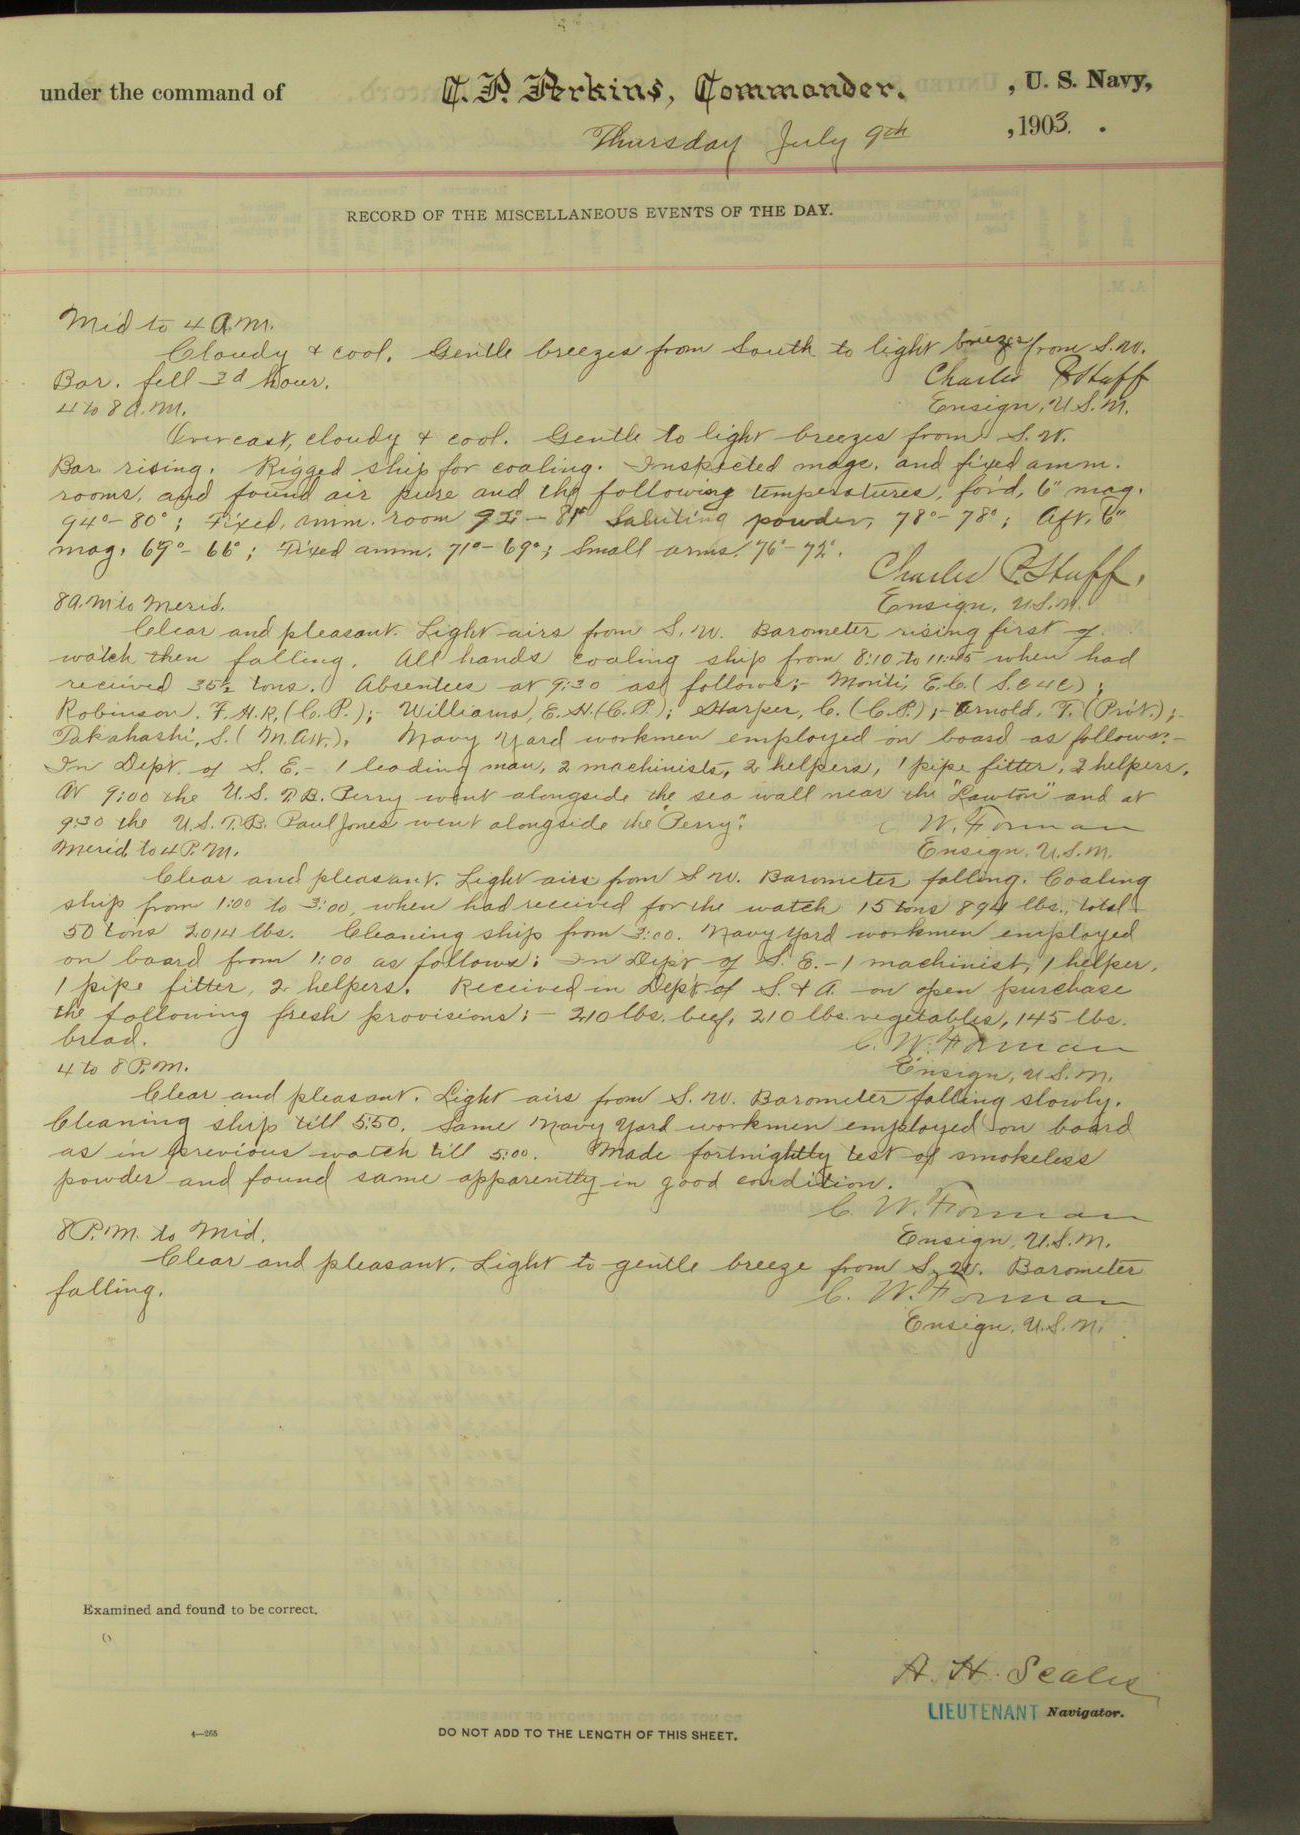 under the command of C. P. Perkins, Commander. , U. S. Navy,
Thursday July 9th , 1903.
RECORD OF THE MISCELLANEOUS EVENTS OF THE DAY.
Mid to 4 A.M.
Cloudy & cool. Gentle breezes from South to light breezes from S.W.
Bar. fell 3d hour. Charles
4 to 8 A.M. Ensign, U.S.N.
Overcast, cloudy & cool. Gentle to light breezes from S.W.
Bar rising. Rigged ship for coaling. Inspected mags. and fixed amm.
rooms, and found air pure and the following temperatures, for'd, 6" mag.
94°-80°; Fixed, amm. room 92°-81° Saluting powder, 78°-78°; Aft. 6"
mag. 69°-66°; Fixed amm. 71°-69°; Small arms. 76°-72°.
Charles P.
8 A.M. to Merid. Ensign, U.S.N.
Clear and pleasant. Light airs from S.W. Barometer rising first of
watch then falling. All hands coaling ship from 8:10 to 11:45 when had
received 35½ tons. Absentees at 9:30 as follows:- E.C.
Robinson, F.H.R, (C.P.);- Williams, E.H. (C.P.); Harper, C. (C.P.);- Arnold, T. (Priv't.);-
Takahashi, S. (M.Att.). Navy Yard workmen employed on board as follows:-
In Dept. of S. E.- 1 leading man, 2 machinists, 2 helpers, 1 pipe fitter, 2 helpers.
At 9:00 the U.S. T.B. Perry went alongside the sea wall near the "Lawton" and at
9:30 the U.S. T.B. Paul Jones went alongside the "Perry". C. W. Forman
Merid. to 4 P.M. Ensign, U.S.N.
Clear and pleasant. Light airs from S.W. Barometer falling. Coaling
ship from 1:00 to 3:00, when had received for the watch 15 tons 894 lbs., total
50 tons 2014 lbs. Cleaning ship from 3:00. Navy Yard workmen employed
on board from 1:00 as follows: In Dept of S. E.-1 machinist, 1 helper,
1 pipe fitter, 2 helpers. Received in Dept of S. & A. on open purchase
the following fresh provisions:- 210 lbs. beef, 210 lbs. vegetables, 145 lbs.
bread. C. W. Forman
4 to 8 P.M. Ensign, U.S.N.
Clear and pleasant. Light airs from S.W. Barometer falling slowly.
Cleaning ship till 5:50. Same Navy Yard workmen employed on board
as in previous watch till 5:00. Made fortnightly test of smokeless
powder and found same apparently in good condition.
C. W. Forman
8 P.M. to Mid. Ensign, U.S.N.
Clear and pleasant. Light to gentle breeze from S.W. Barometer
falling. C. W. Forman
Ensign, U.S.N.
Examined and found to be correct.
A. H. Scales
LIEUTENANT Navigator.
4-265 DO NOT ADD TO THE LENGTH OF THIS SHEET.